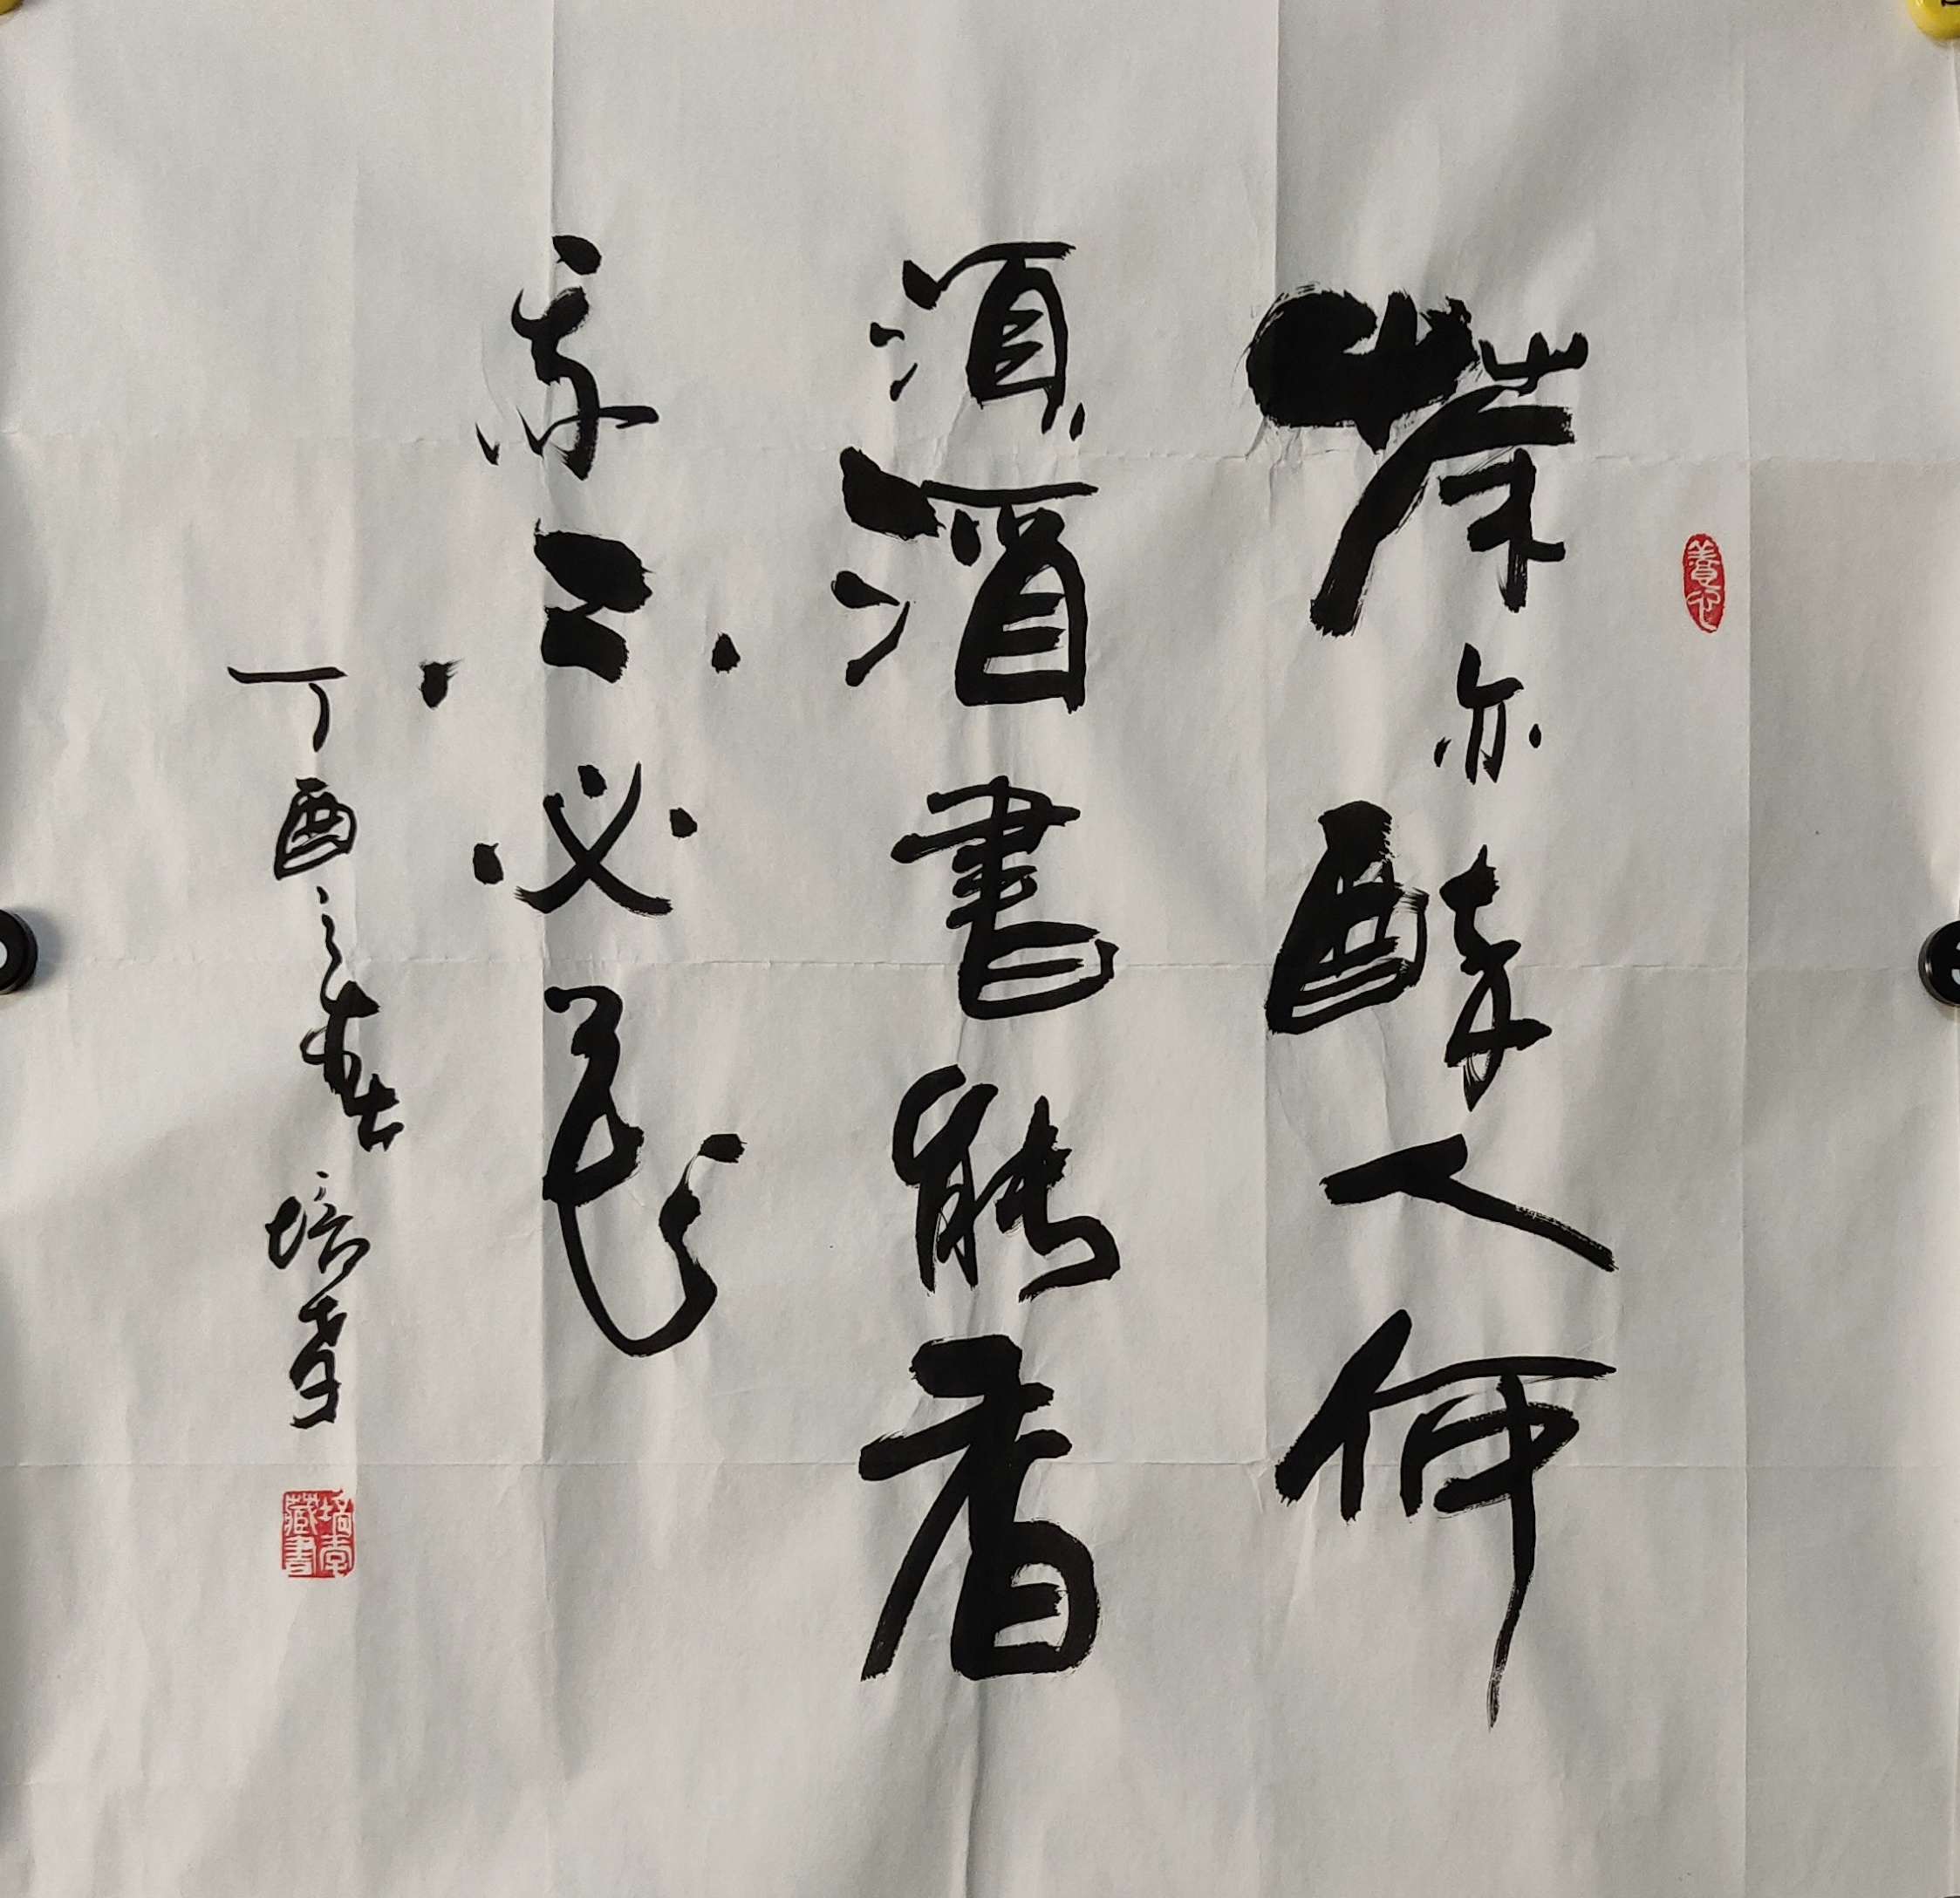 養心
茶亦醉人何
須酒書能香
我不必花
丁酉之春 培
藏書